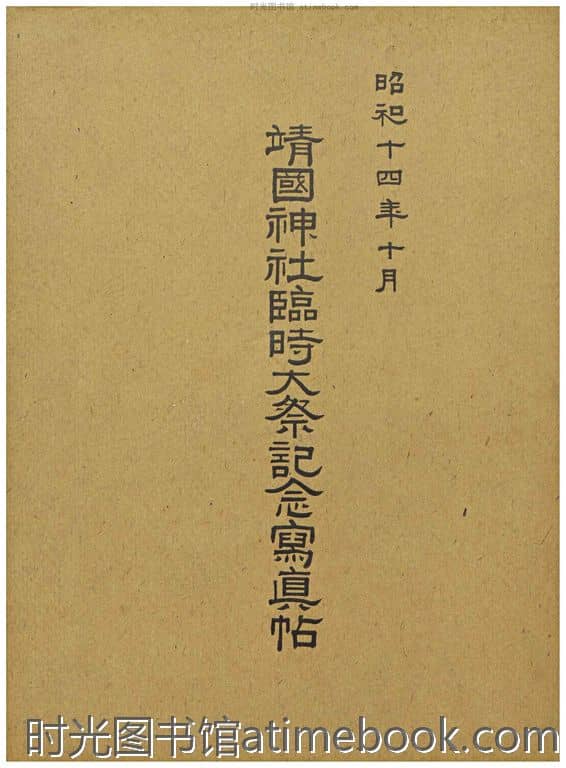 时光图书馆 atimebook.com
昭和十四年十月
靖國神社臨時大祭記念寫真帖
时光图书馆atimebook.com